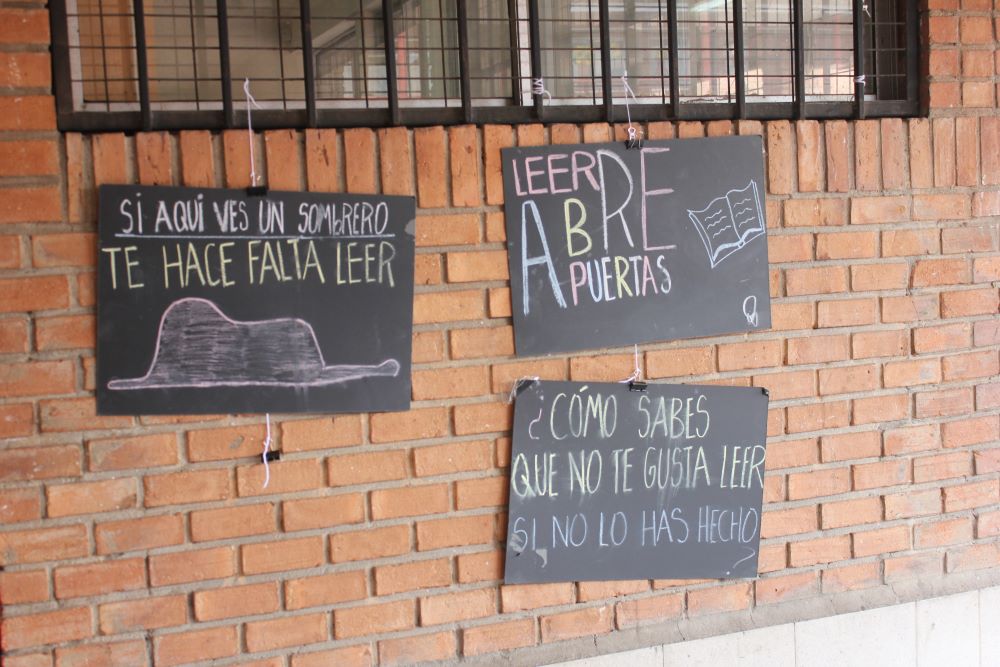 SI AQUI VES UN SOMBRERO
TE HACE FALTA LEER
LEER
ABRE
PUERTAS
¿CÓMO SABES
QUE NO TE GUSTA LEER
SI NO LO HAS HECHO
?